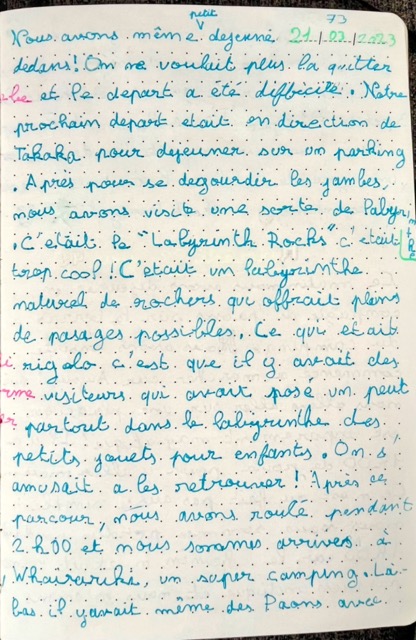 73
petit
Nous avons même dejeuné 21/02/2023
dedans! On ne voulait plus la quitter
et le depart a été difficile. Notre
prochain depart etait en direction de
Takaka pour dejeuner sur un parking
. Après pour se degourdir les jambes,
nous avons visité une sorte de labyrin
the
. C'etait le "Labyrinth Rocks" c'était
trop cool! C'etait un labyrinthe
naturel de rochers qui offrait pleins
de pasages possibles. Ce qui etait
rigolo c'est que il y avait des
visiteurs qui avait posé un peut
partout dans le labyrinthe des
petits jouets pour enfants. On s'
amusait a les retrouver! Après ce
parcour, nous avons roulé pendant
2h00 et nous sommes arrivés à
Whairariki, un super camping. La-
bas il yavait même des Paons avec